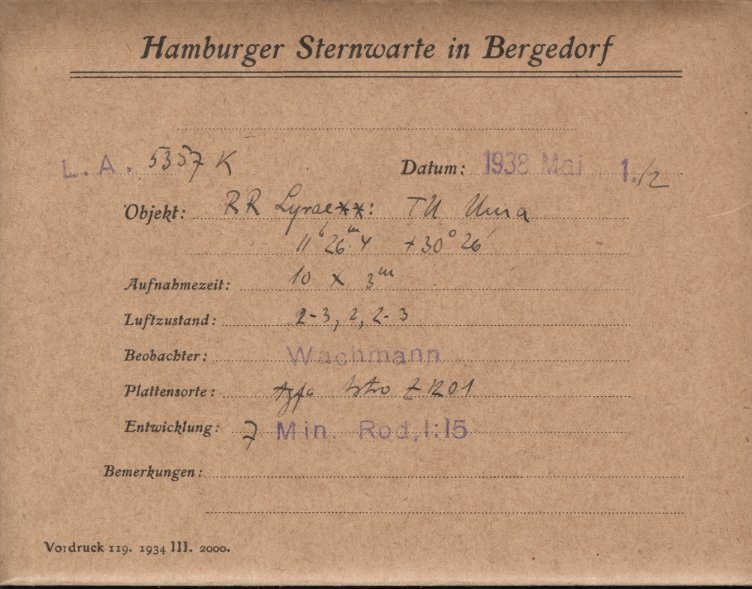 Hamburger Sternwarte in Bergedorf
L. A. 5357 K Datum: 1938 Mai 1./2
Objekt: RR Lyrae**: TU Uma
11ʰ 26ᵐ.4 +30° 26'
Aufnahmezeit: 10 x 3ᵐ
Luftzustand: 2-3, 2, 2-3
Beobachter: Wachmann
Plattensorte: Agfa Astro Z 1201
Entwicklung: 7 Min. Rod, 1:15
Bemerkungen:
Vordruck 119. 1934 III. 2000.